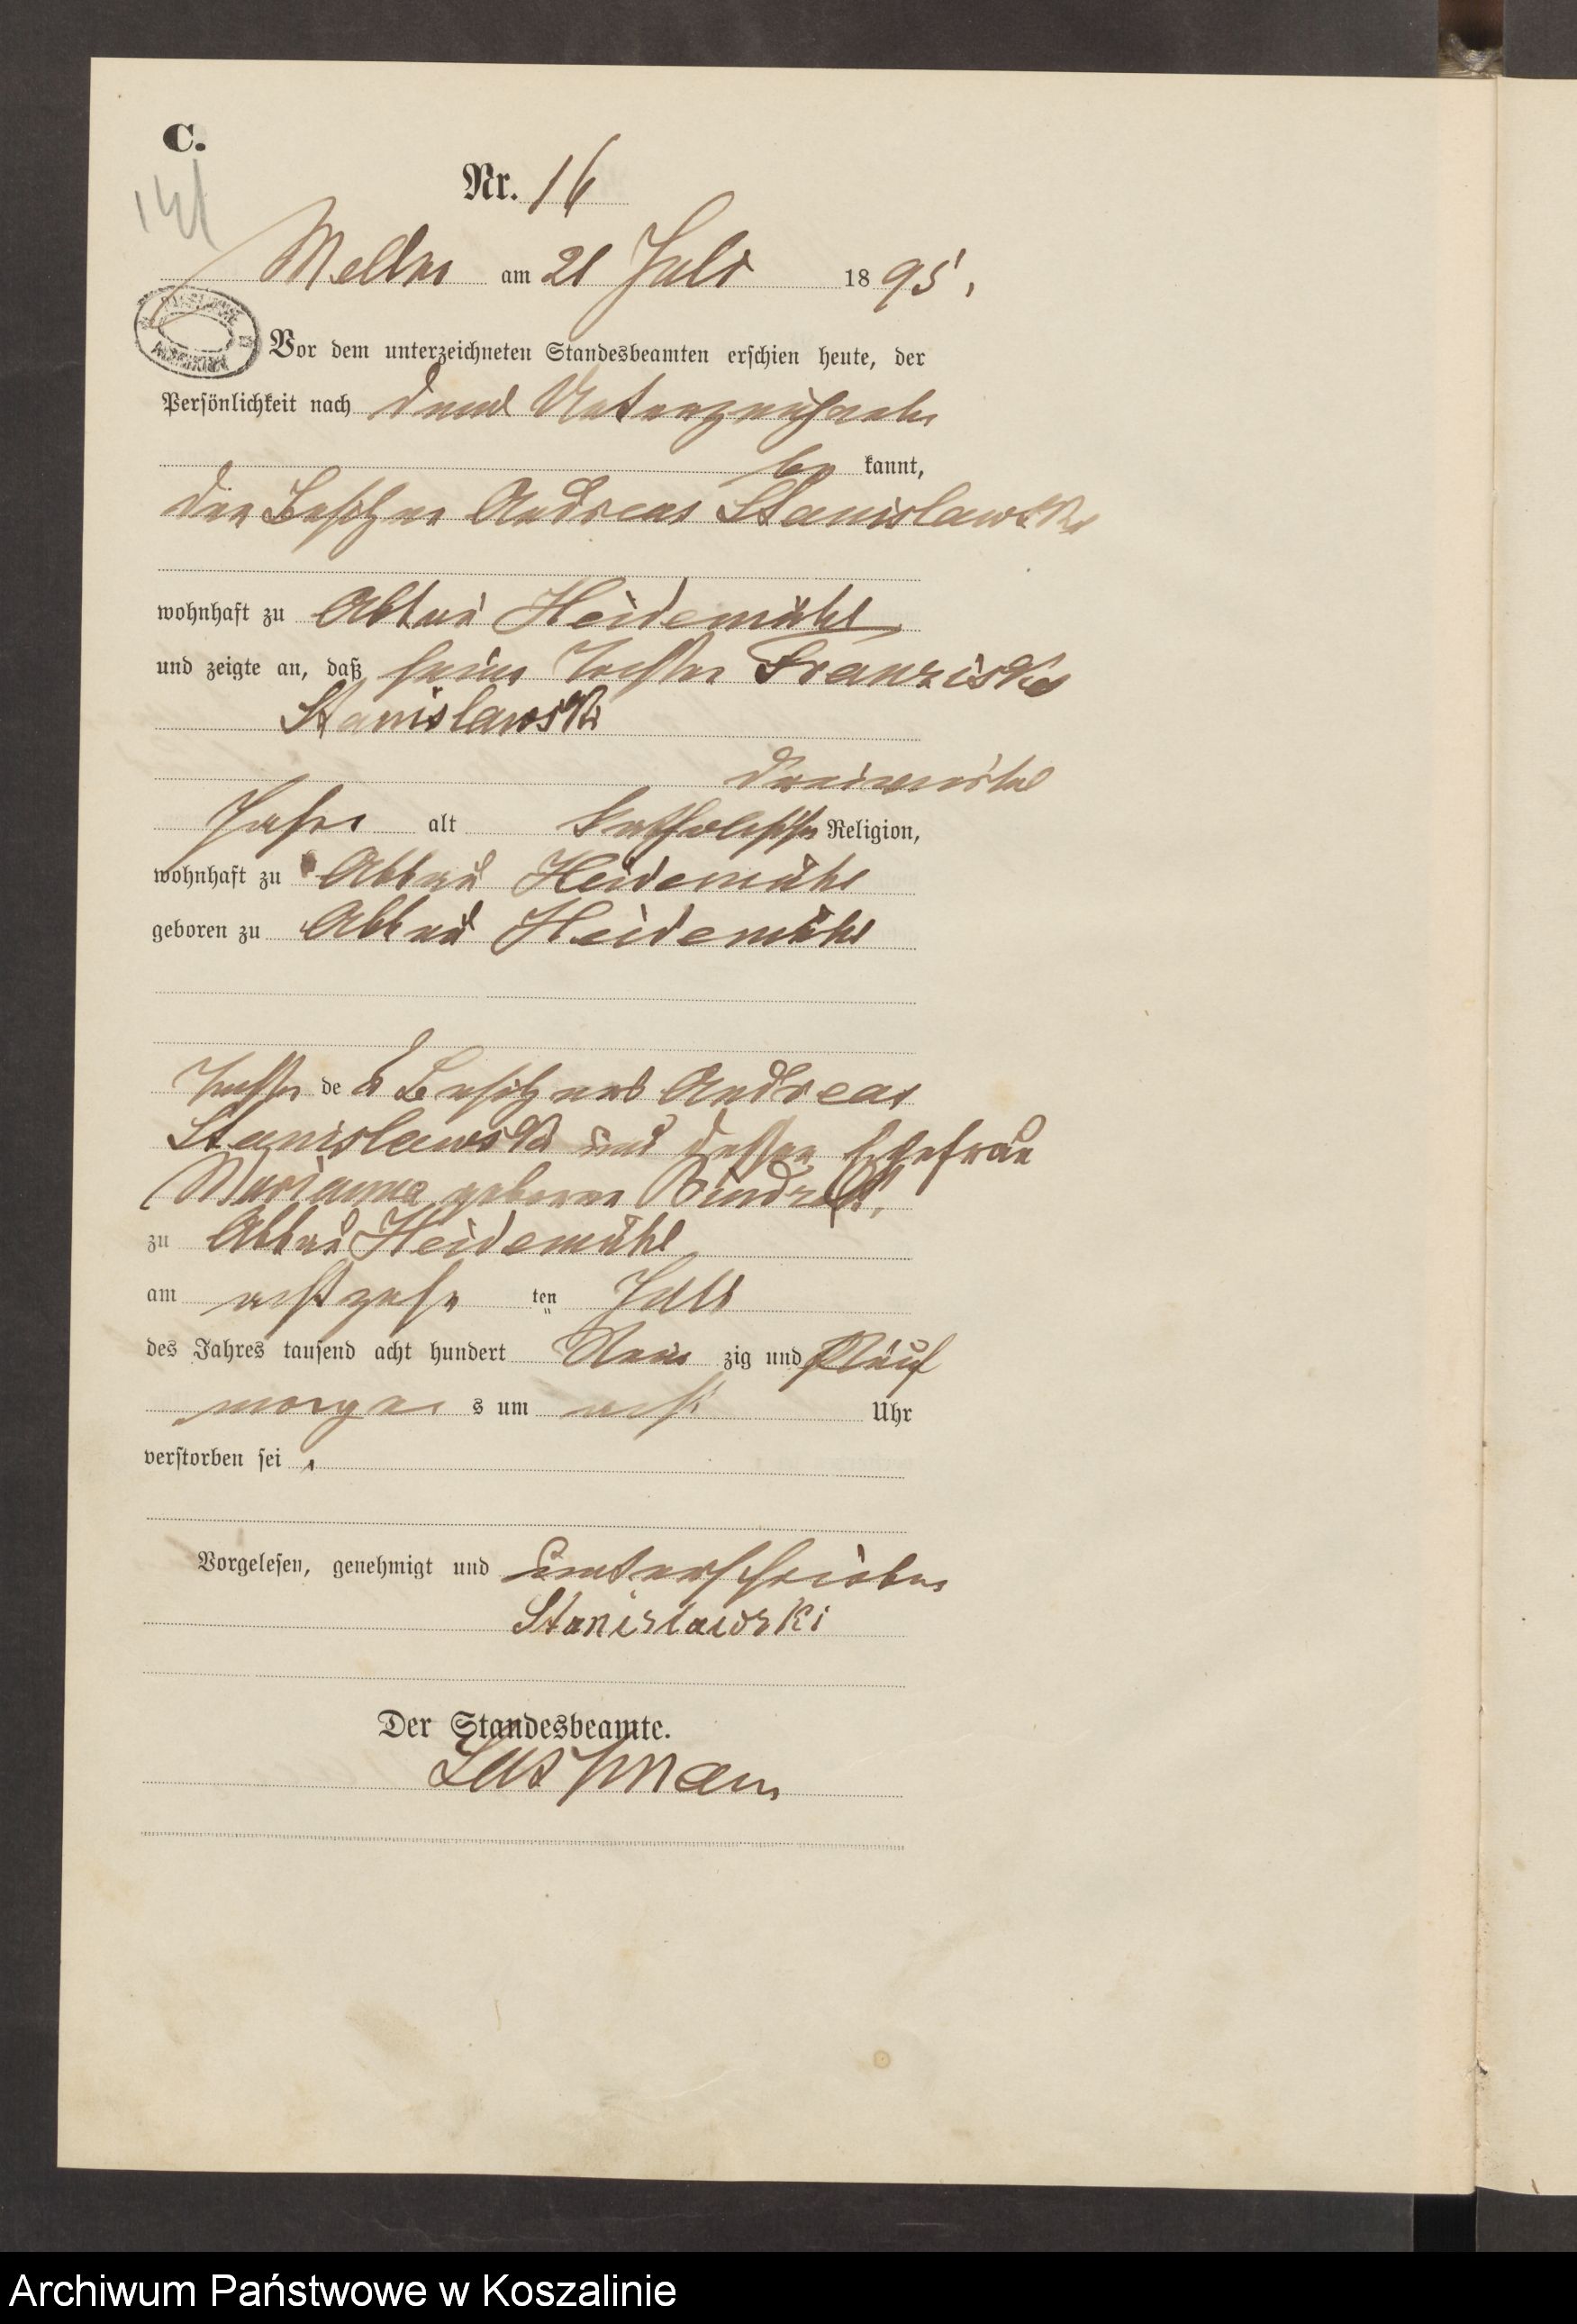 C.
141
Nr. 16
am 21 Juli 1895.
Vor dem unterzeichneten Standesbeamten erschien heute, der
Persönlichkeit nach dem Unterzeichneten
be kannt,
der Besitzer Andreas Stanislawski
wohnhaft zu Abbau Heidemühl
und zeigte an, daß seine Tochter Franziska
Stanislawski
dreiviertel
Jahre alt katholischer Religion,
wohnhaft zu Abbau Heidemühl
geboren zu Abbau Heidemühl
Tochter des Besitzers Andreas
Stanislawski und dessen Ehefrau
Marianna geborene
zu Abbau Heidemühl
am achtzehn ten Juli
des Jahres tausend acht hundert Neun zig und Fünf
morgens um acht Uhr
verstorben sei.
Vorgelesen, genehmigt und unterschrieben
Stanislawski
Der Standesbeamte.
Archiwum Państwowe w Koszalinie